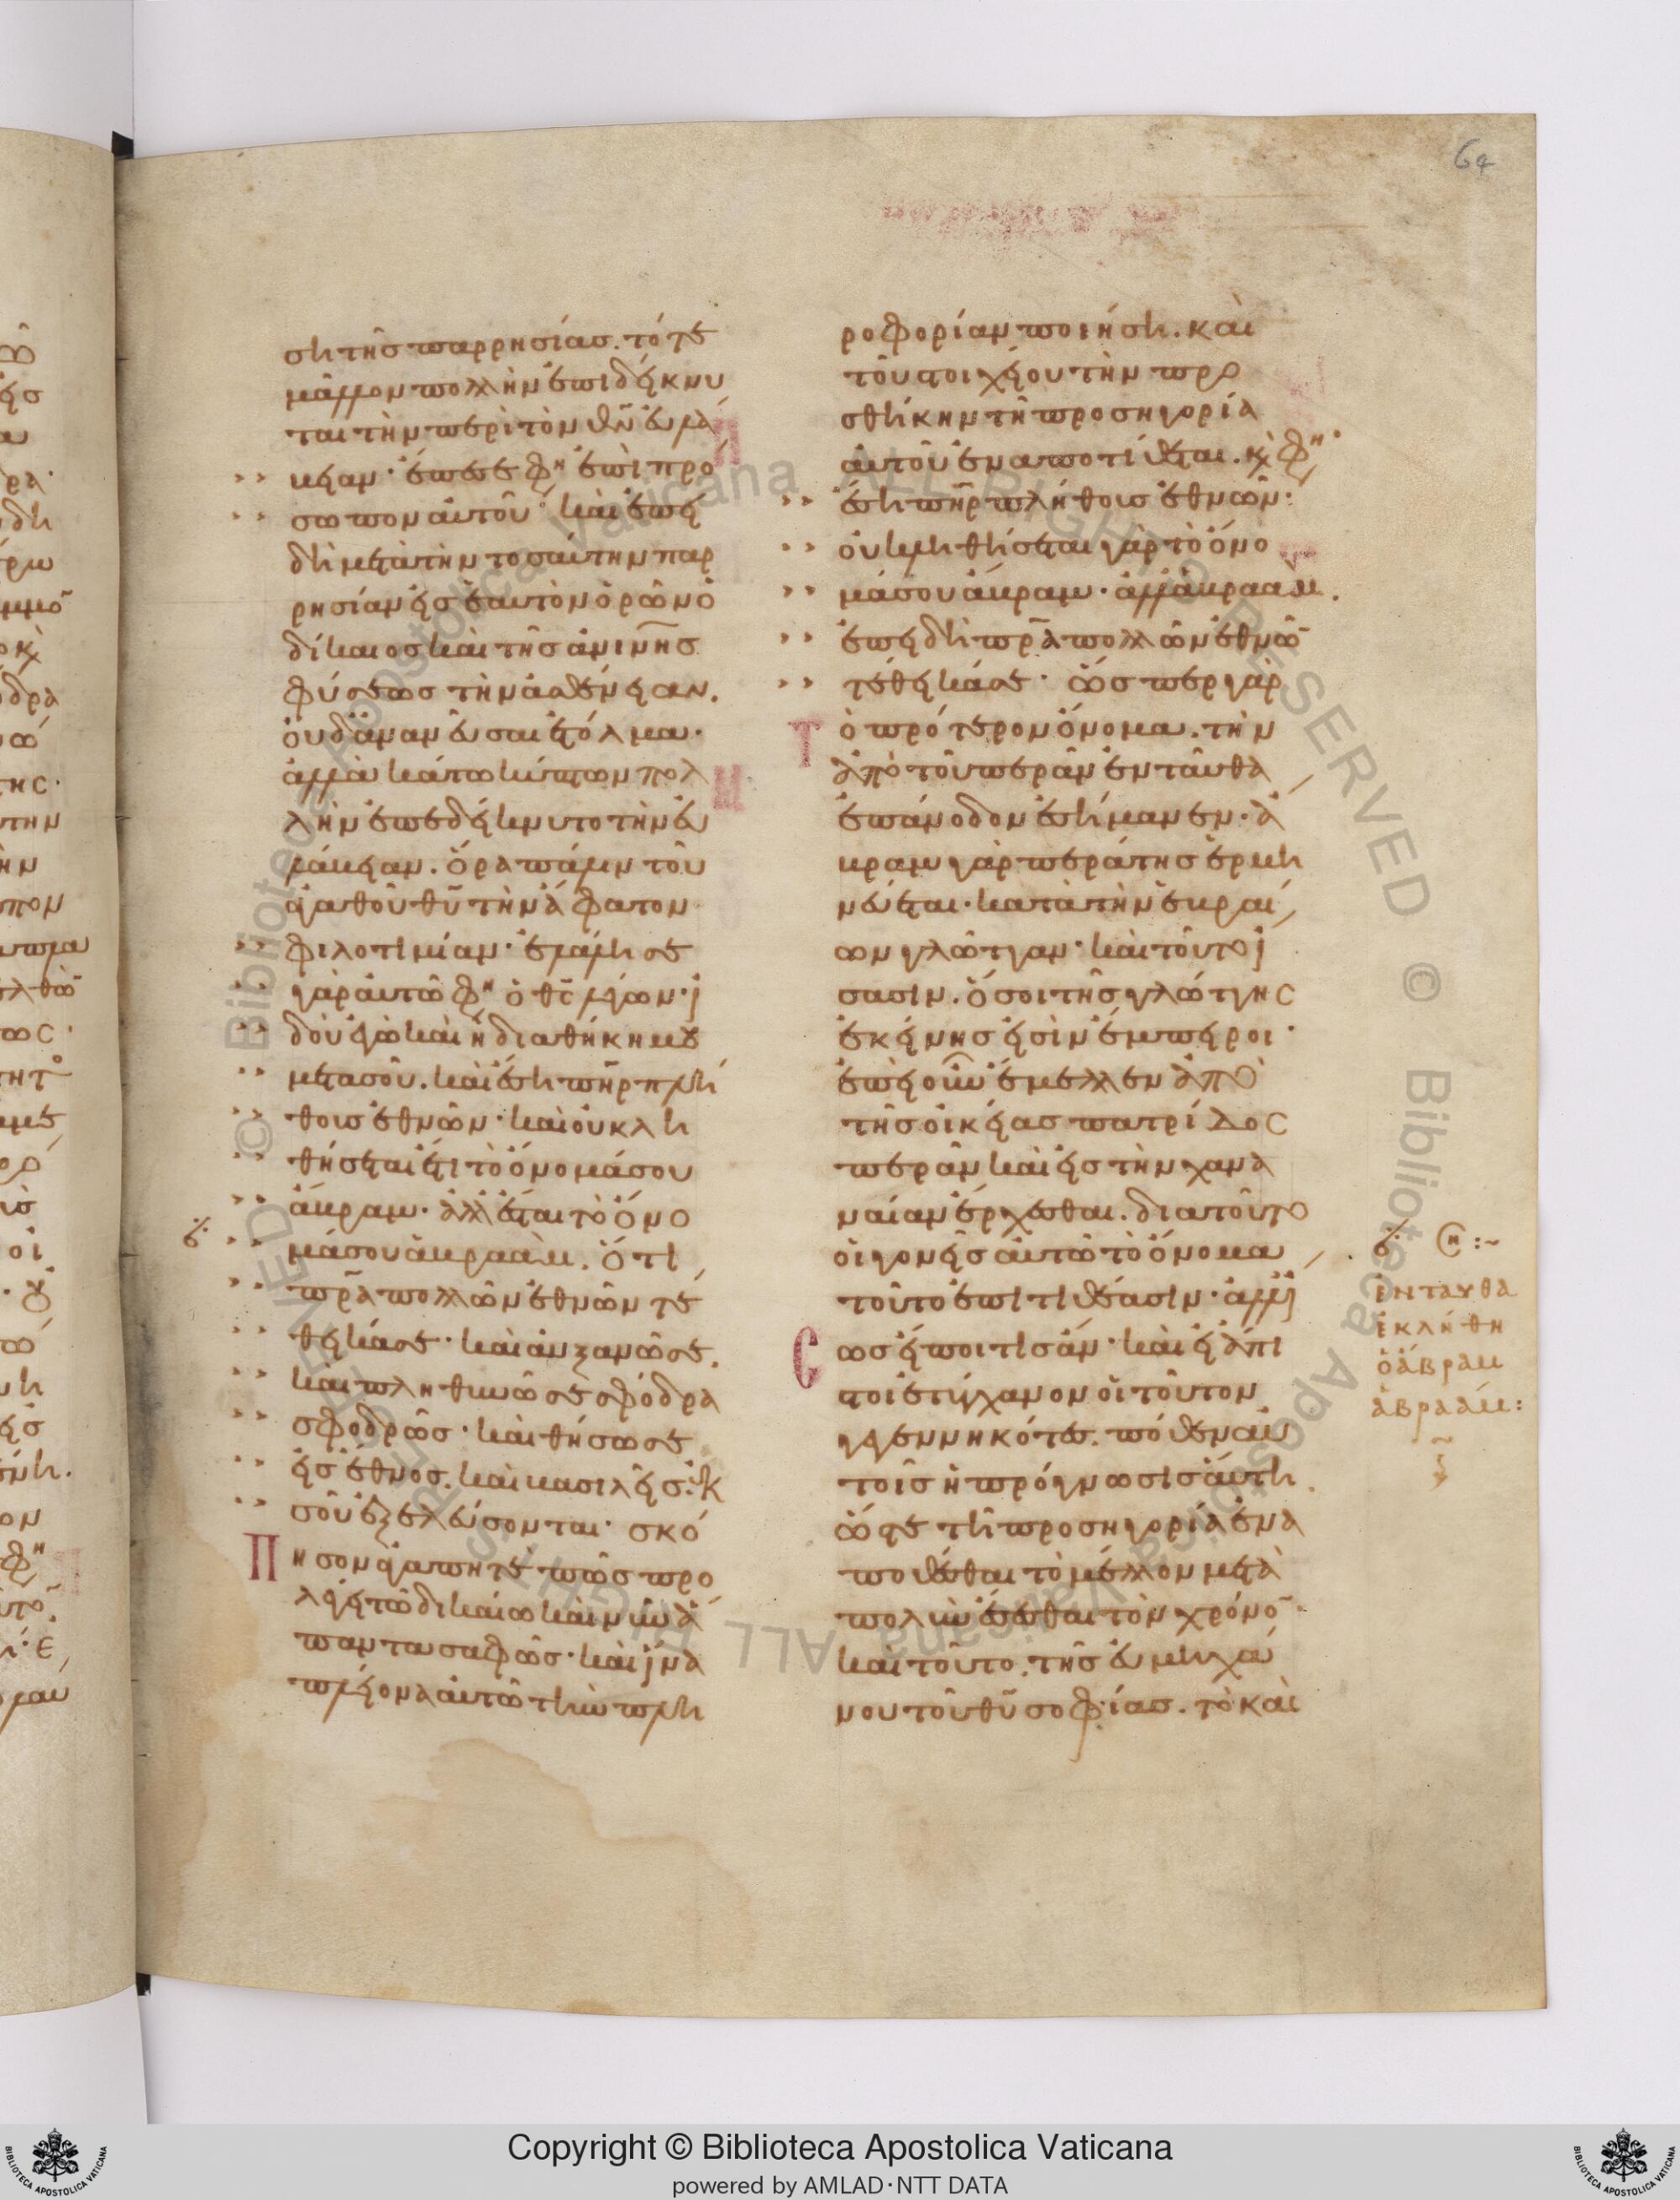 64
ση τῆς παρρησίας. τότε
μᾶλλον πολλὴν ἐπιδείκνυ
ται τὴν περὶ τὸν θν̄ εὐλά
βειαν· ἔπεσε φη ἐπὶ πρό
σωπον αὐτοῦ· καὶ ἐπει
δὴ μετὰ τὴν τοσαύτην παρ
ρησίαν εἰς ἑαυτὸν ὁρῶν ὁ
δίκαιος καὶ τῆς ἀνίνης
φύσεως τὴν ἀσθένειαν.
οὐδὲ ἀναννεῦσαι ἐτόλμα·
ἀλλὰ κάτω κύπτων πολ
λὴν ἐπεδείκνυτο τὴν εὐ
λάβειαν. ὅρα πάλιν τοῦ
ἀγαθοῦ θῡ τὴν ἄφατον
φιλοτιμίαν· ἐλάλησε
γὰρ αὐτῶ φη ὁ θς̄ λέγων· ἰ
δοὺ ἐγὼ καὶ ἡ διαθήκη μου
μετὰ σοῦ. καὶ ἔση πηρ πλή
θους ἐθνῶν· καὶ οὐ κλη
θήσεται ἔτι τὸ ὄνομά σου
ἄβραμ· ἀλλ' ἔσται τὸ ὄνο
μά σου ἀβραάμ. ὅτι
πρ̄α πολλῶν ἐθνῶν τέ
θεικά σε· καὶ αὐξανῶ σε.
καὶ πληθυνῶ σε σφόδρα
σφοδρῶς· καὶ θήσω σε
εἰς ἔθνος. καὶ βασιλεῖς ἐκ
σοῦ ἐξελεύσονται· σκό
πησον ἀγαπητὲ πῶς προ
λέγει τῶ δικαίω καὶ νῦν ἅ
παντα σαφῶς· καὶ ἵνα
πλείονα αὐτῶ τὴν πλη
ροφορίαν ποιήση. καὶ
τοῦ στοιχείου τὴν προ
σθήκην τῆ προσηγορία
αὐτοῦ ἐναποτίθεται. κ̀ φη·
ἔση πηρ πλήθους ἐθνῶν·
οὐ κληθήσεται γὰρ τὸ ὄνο
μά σου ἄβραμ· ἀλλὰ ἀβραάμ.
ἐπειδὴ πρ̄α πολλῶν ἐθνῶ
τέθεικά σε· ὥσπερ γὰρ
τὸ πρότερον ὄνομα. τὴν
ἀπὸ τοῦ περᾶν ἐνταῦθα
ἐπάνοδον ἐσήμανεν· ἄ
βραμ γὰρ περάτης ἑρμη
νεύεται· κατὰ τὴν ἑβραί
ων γλῶτταν· καὶ τοῦτο ἴ
σασιν. ὅσοι τῆς γλώττης
ἐκείνης εἰσὶν ἔμπειροι·
ἐπεὶ οὖν ἔμελλεν ἀπὸ
τῆς οἰκείας πατρίδος
περᾶν καὶ εἰς τὴν χανα
ναίαν ἔρχεσθαι. διατοῦτο
οἱ γονεῖς αὐτῶ τὸ ὄνομα
τοῦτο ἐπιτιθέασιν· ἀλλ' ἴ
σως εἴποι τις ἄν· καὶ εἰ ἄπι
στοι ἐτύγχανον οἱ τοῦτον
γεγεννηκότες. πόθεν αὐ
τοῖς ἡ πρόγνωσις αὕτη.
ὥστε τῆ προσηγορία ἐνα
ποθέσθαι τὸ μέλλον μετὰ
πολὺν ἔσεσθαι τὸν χρόνο
καὶ τοῦτο. τῆς εὐμηχά
νου τοῦ θῡ σοφίας. τὸ καὶ
ἐνταυθα
ἐκλήθη
ὁ ἄβραμ
ἀβραάμ:
Copyright © Biblioteca Apostolica Vaticana
powered by AMLAD·NTT DATA